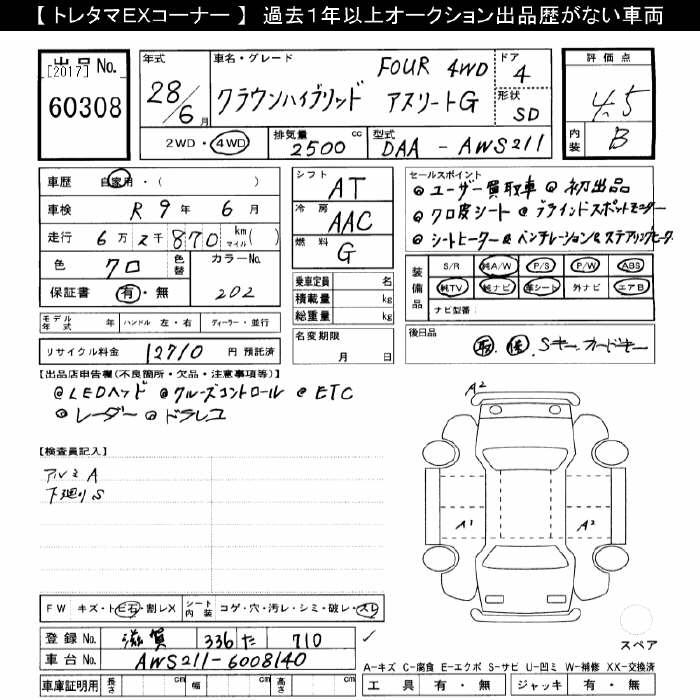 【 トレタマEXコーナー 】 過去1年以上オークション出品歴がない車両
出品 No.
[2017]
60308
年式
28/6月
車名・グレード
FOUR 4WD
クラウンハイブリッド アスリートG
ドア
4
形状
SD
2WD・4WD
排気量
2500 cc
型式
DAA - AWS211
評価点
4.5
内装
B
車歴 自家用・( )
車検 R 9年 6月
走行 6万 2千 870 km マイル ( )
色 クロ 色替 カラーNo.
保証書 有・無 202
モデル年式 年 ハンドル 左・右 ディーラー・並行
リサイクル料金 12710 円 預託済
シフト
AT
冷房
AAC
燃料
G
乗車定員 名
積載量 kg
総重量 kg
名変期限
月 日
セールスポイント
◎ユーザー買取車 ◎初出品
◎クロ皮シート ◎ブラインドスポットモニター
◎シートヒーター&ベンチレーション&ステアリングヒーター
装備品
S/R 純A/W P/S P/W ABS
純TV 純ナビ 革シート 外ナビ エアB
ナビ型番:
後日品
取 保 Sキー カードキー
【出品店申告欄(不良箇所・欠品・注意事項等)】
◎LEDヘッド ◎クルーズコントロール ◎ETC
◎レーダー ◎ドラレコ
【検査員記入】
アルミ A
下廻り S
A2
A1
A2
FW キズ・トビ石・割レX シート内装 コゲ・穴・汚レ・シミ・破レ・スレ
登録 No. 滋賀 336 た 710 ✓
車台 No. AWS211-6008140
車庫証明用 長さ cm 幅 cm 高さ cm
スペア
A-キズ C-腐食 E-エクボ S-サビ U-凹ミ W-補修 XX-交換済
工具 有・無 ジャッキ 有・無